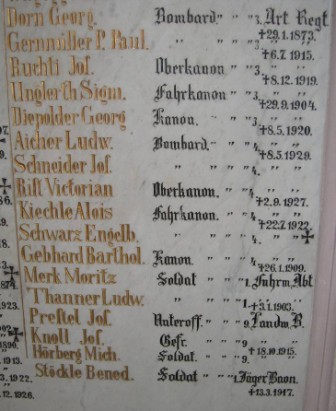 Dorn Georg. Bombard. " " "3. Art. Regt.
†29.1.1873.
Gernmüller P. Paul. " " " "3. "
†6.7.1915.
Ruchti Jos. Oberkanon " " "3. "
†8.12.1919.
Unglerth Sigm. Fahrkanon " " "3. "
†29.9.1904.
Diepolder Georg Kanon. " " "3. "
†8.5.1920.
Aicher Ludw. Bombard. " " "4. "
†8.5.1929.
Schneider Jos. " " " "4. "
Rist Victorian Oberkanon. " " "4. "
†2.9.1927.
Kiechle Alois Fahrkanon. " " "4. "
†22.7.1922.
Schwarz Engelb. " " " "4. "
Gebhard Barthol. Kanon. " " "4. "
†26.1.1909.
Merk Moritz Soldat " " "1. Fuhrw. Abt
Thanner Ludw. " " " "1. "
†3.1.1903.
Prestel Jos. Unteroff. " " "9. Landw. B.
Knoll Jos. Gefr. " " "9. "
†18.10.1915.
Hörberg Mich. Soldat. " " "9. "
Stöckle Bened. Soldat " " "1. Jäger Baon.
†13.3.1917.
1923.
1890.
1913.
3.1922.
12.1926.